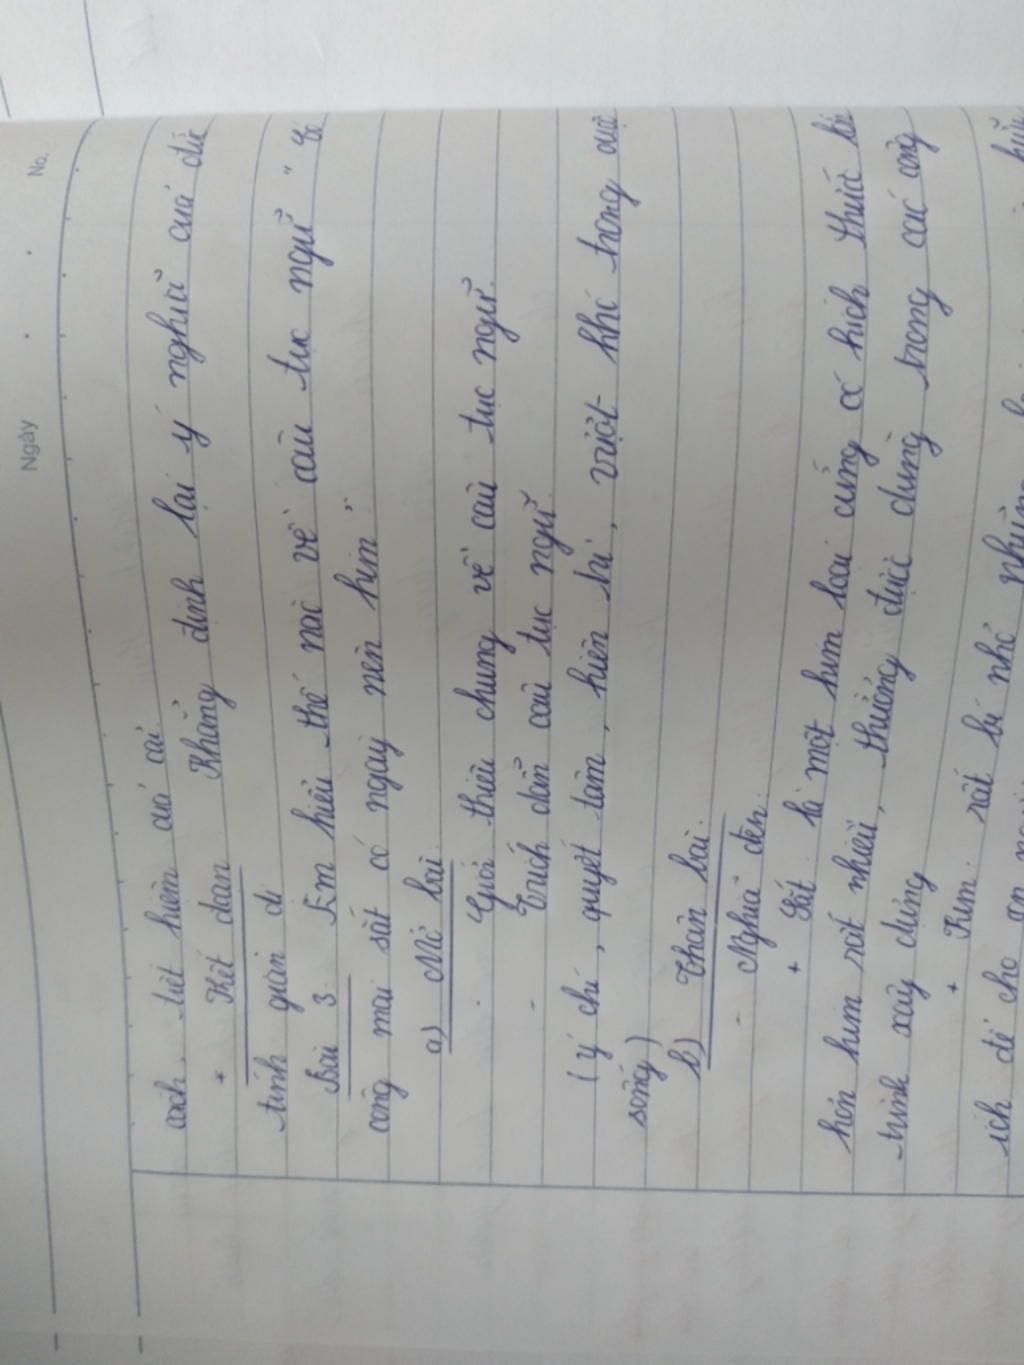 Ngày No.
cách, tiết kiệm của cải.
* Kết đoạn Khẳng định lại ý nghĩa của đức
tính giản dị
Bài 3. Em hiểu thế nào về câu tục ngữ "
công mài sắt có ngày nên kim"
a) Mở bài
- Giới thiệu chung về câu tục ngữ.
- Trích dẫn câu tục ngữ.
(ý chí, quyết tâm, kiên trì, vượt khó trong cuộc
sống)
b) Thân bài.
- Nghĩa đen:
+ Sắt là một kim loại cứng có kích thước
hơn kim rất nhiều, thường được dùng trong các công
trình xây dựng
+ Kim: rất bé nhỏ